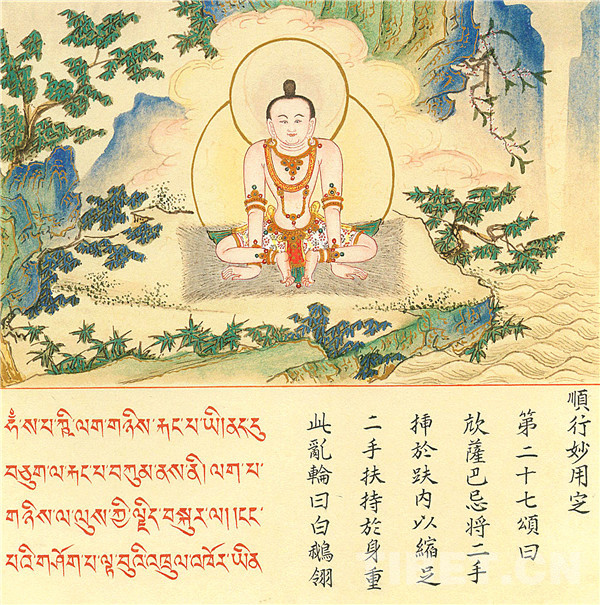 ཧཾ་ས་པ་ཀྵི་ལག་གཉིས་རྐང་པ་ཡི།ནང་དུ
བཅུག་ལ་རྐང་པ་བཀུམ་ནས་ནི། ལག་པ་
གཉིས་ལ་ལུས་ཀྱི་ལྗིད་བསྐུར་ལ། །ངང་
པའི་གཤོག་པ་ལྟ་བུའི་འཁྲུལ་འཁོར་ཡིན
順行妙用定
第二十七頌曰
薩巴忌將二手
揷於趺内以縮足
二手扶持於身重
此亂輪曰白鵝翎
TIBET.CN